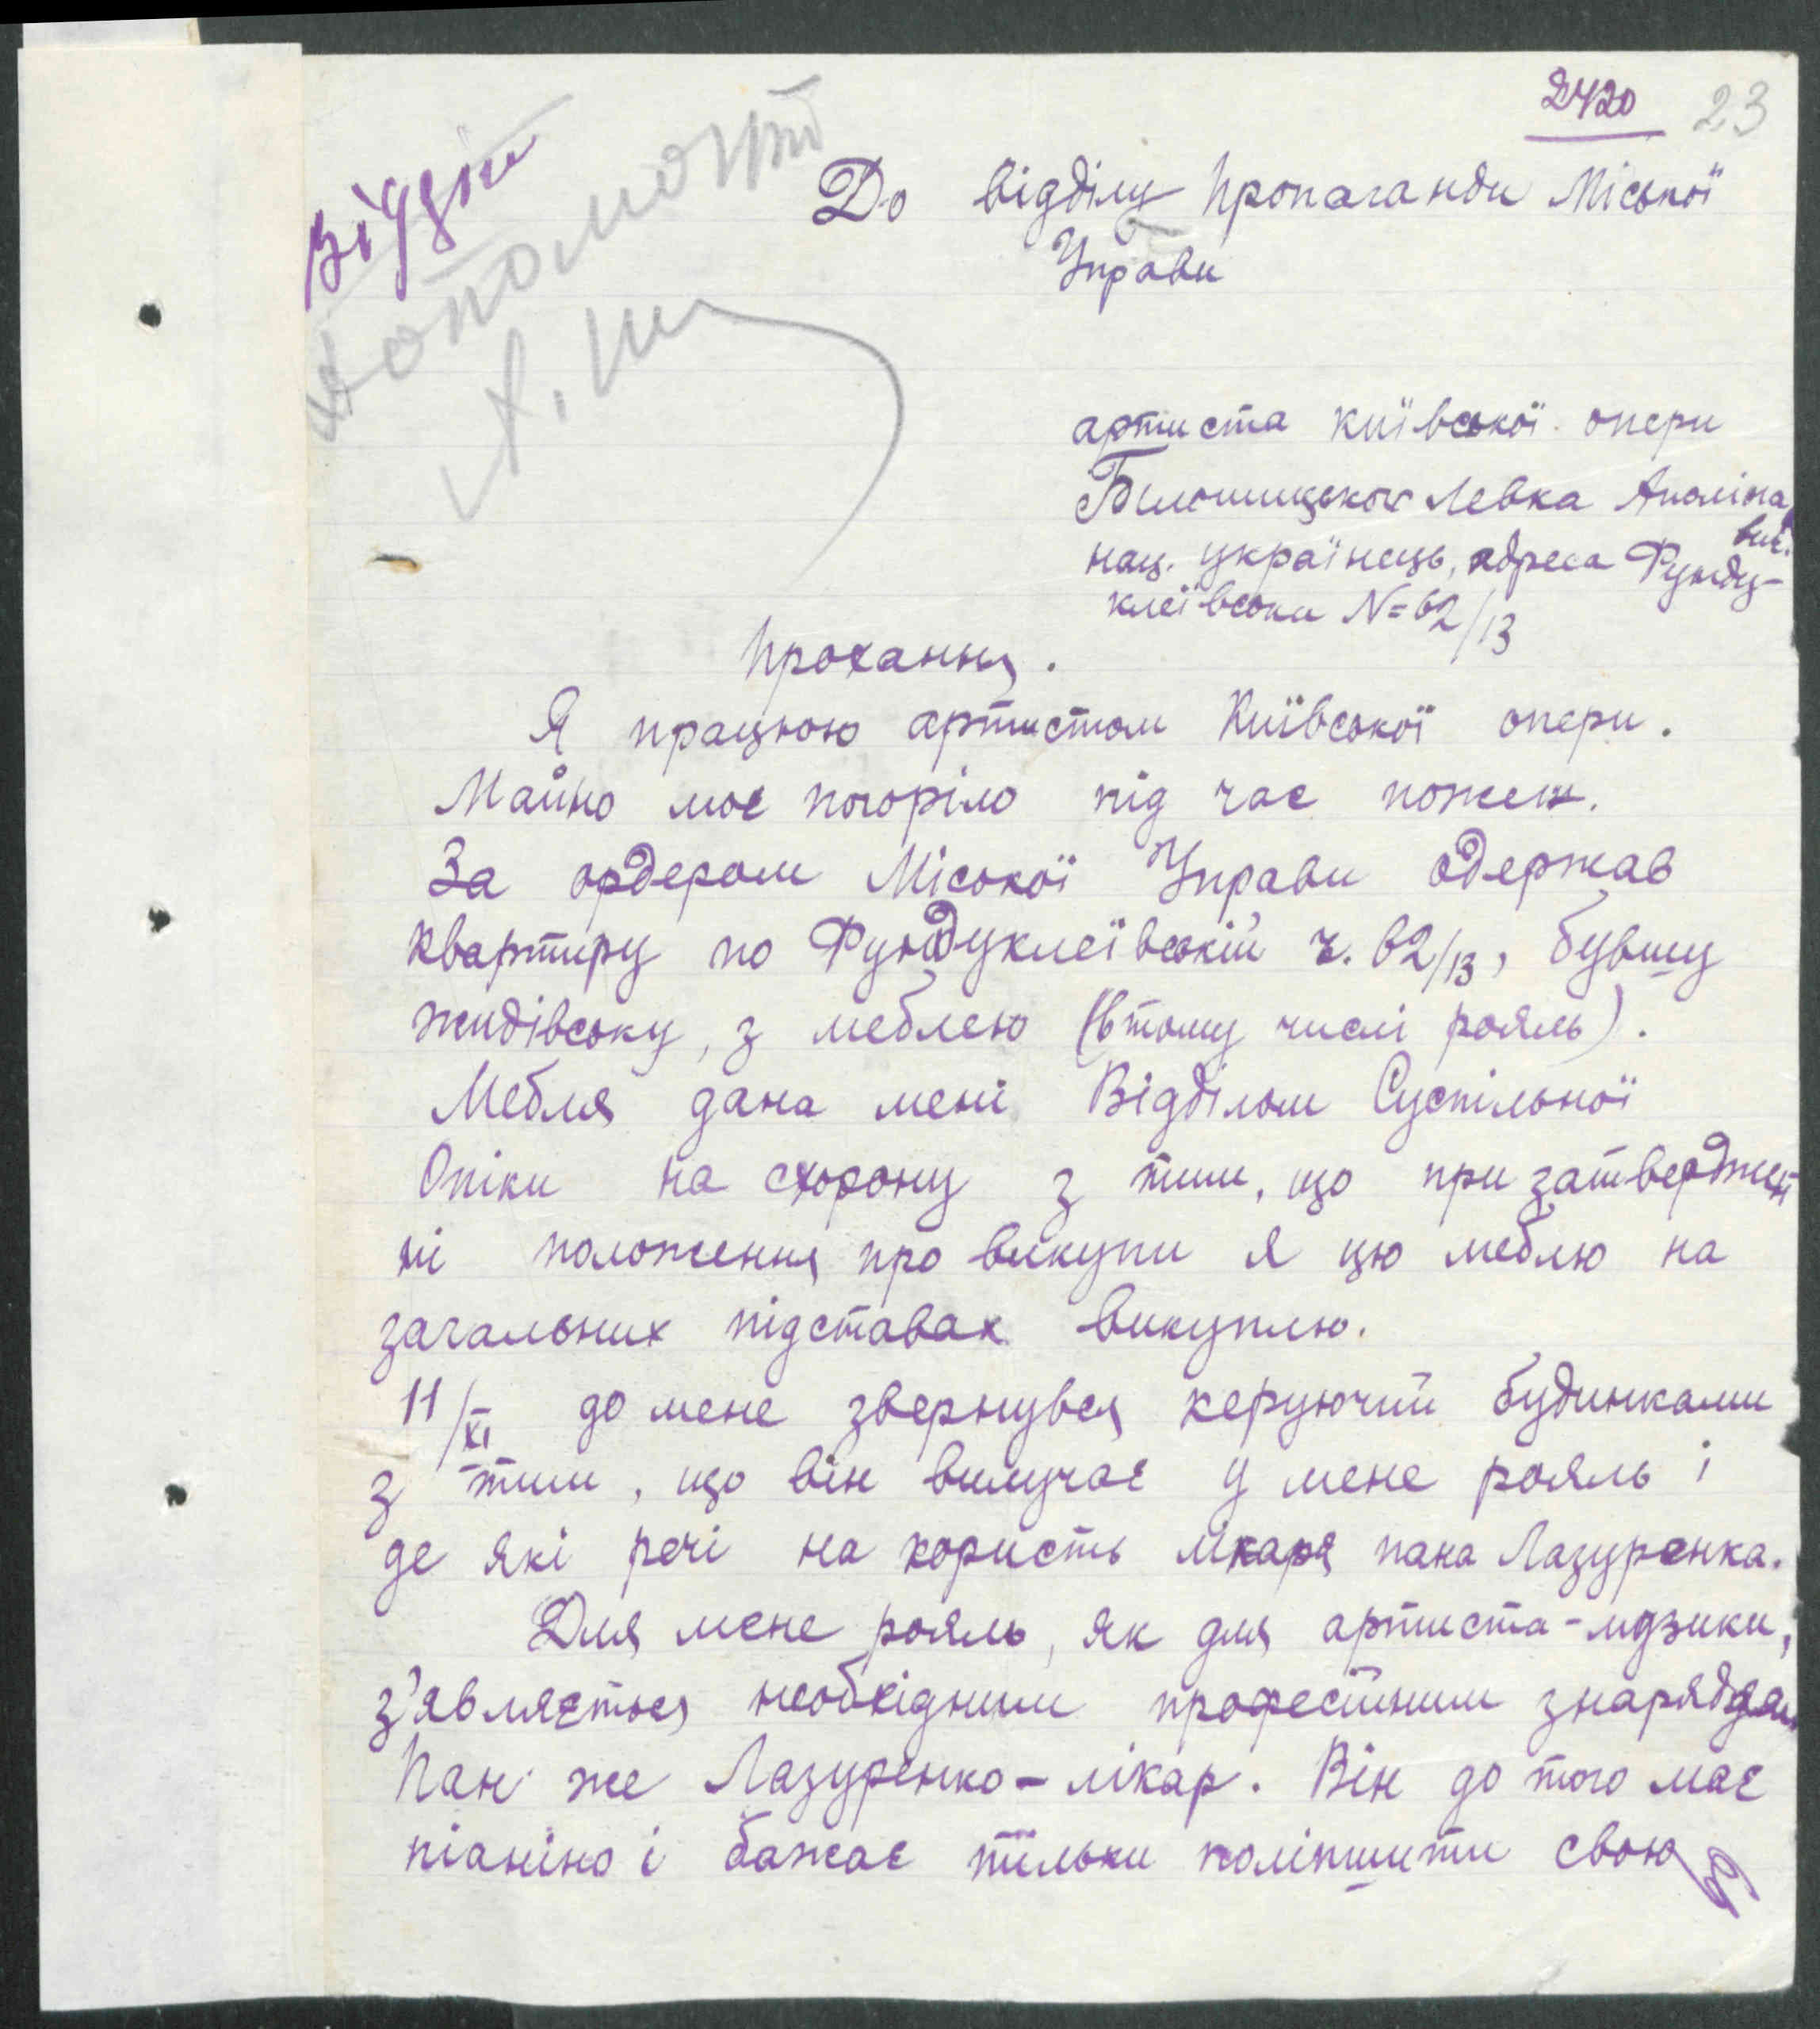 2420 23
До відділу Пропаганди Міської
Управи
допомогти
артиста Київської опери
Білошицького Левка Аполіна
вич.
нац. українець, адреса Фунду-
клеївська N=62/13
Прохання.
Я працюю артистом Київської опери.
Майно моє погоріло під час пожеж.
За ордером Міської Управи одержав
квартиру по Фундуклеївській ч. 62/13, бувшу
жидівську, з меблею (в тому числі рояль).
Мебля дана мені Відділом Суспільної
Опіки на схорону з тим, що при затверджен
ні положення про викупи я цю меблю на
загальних підставах викуплю.
11/XI до мене звернувся керуючий будинками
з тим, що він вилучає у мене рояль і
де які речі на користь лікаря пана Лазуренка.
Для мене рояль, як для артиста-музики,
з'являється необхідним професійним знаряддям
Пан же Лазуренко - лікар. Він до того має
піаніно і бажає тільки поліпшити свою